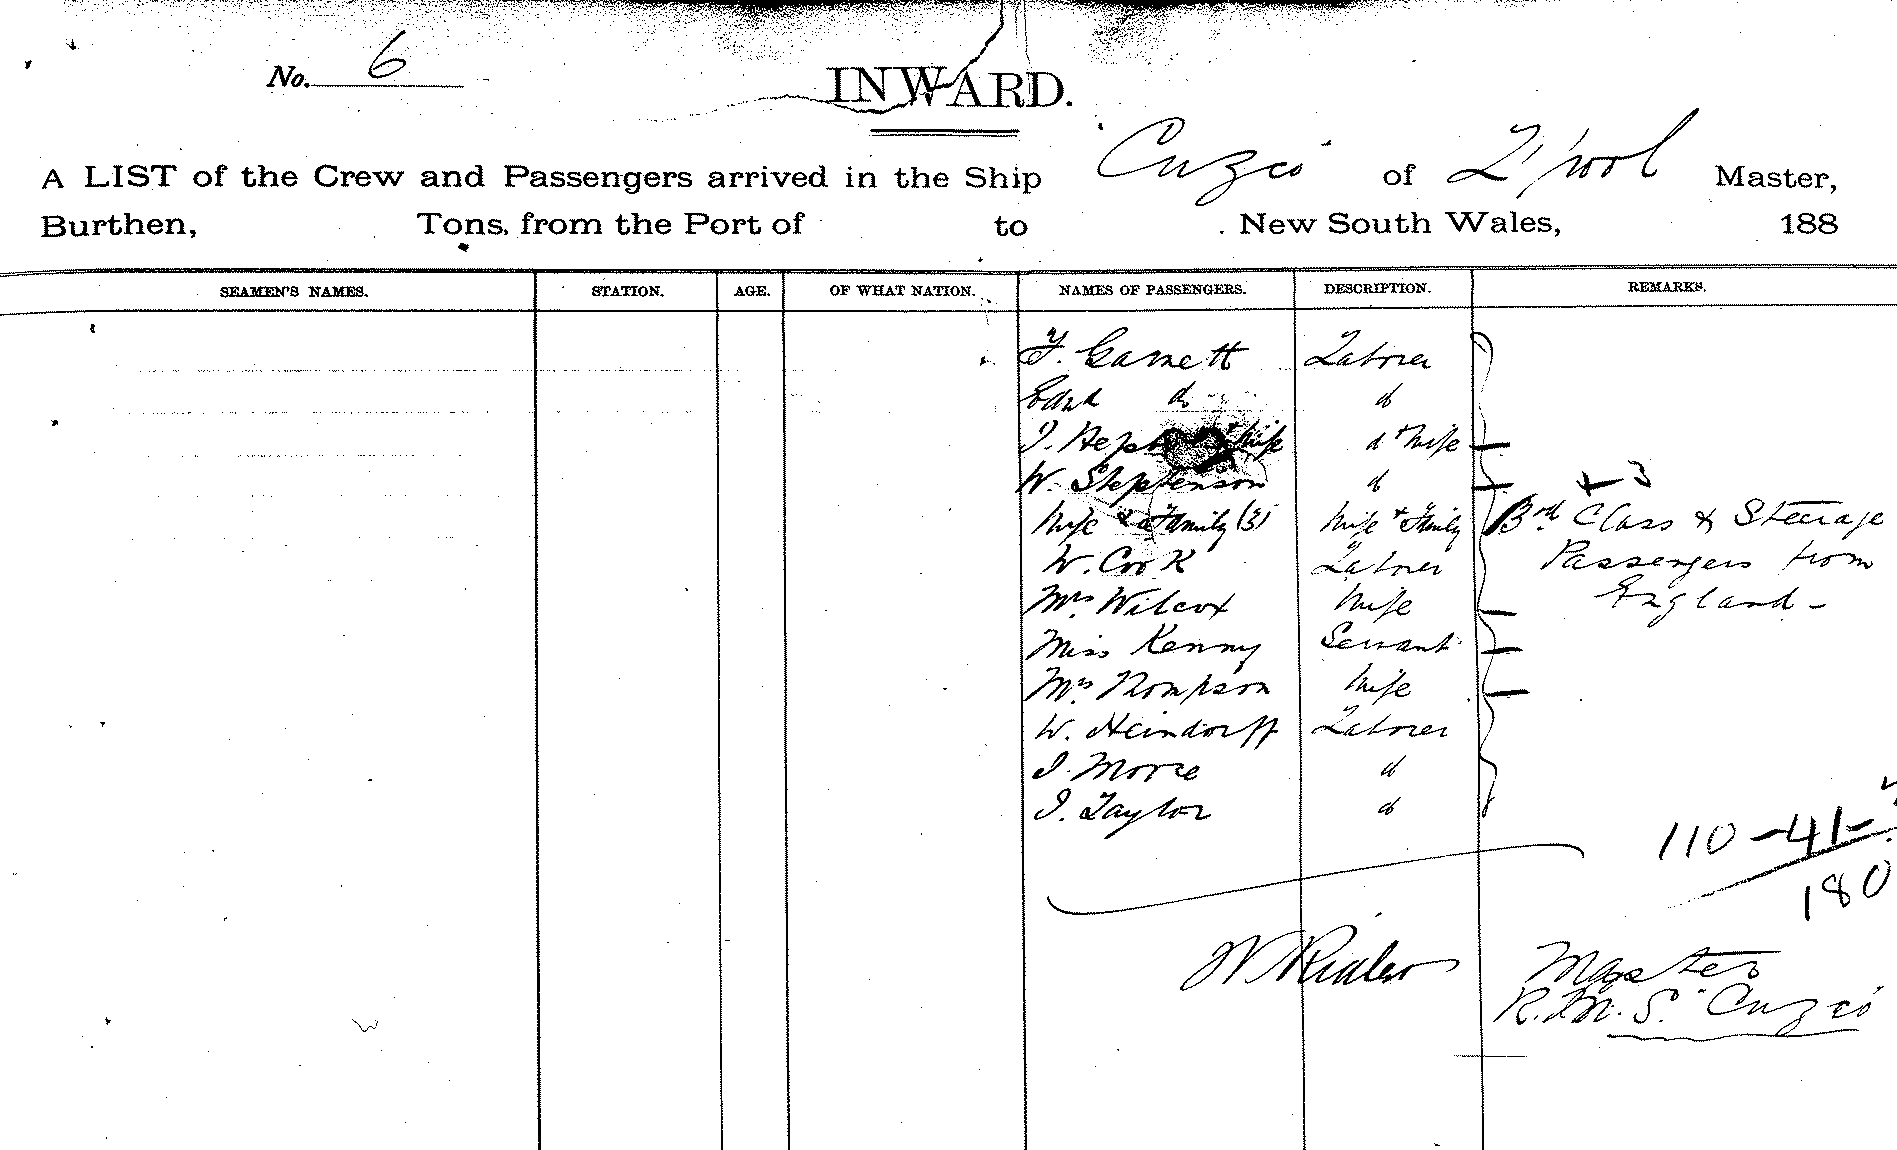 No. 6
INWARD.
A LIST of the Crew and Passengers arrived in the Ship Cuzco of L'pool Master,
Burthen, Tons, from the Port of to New South Wales, 188
SEAMEN'S NAMES. STATION. AGE. OF WHAT NATION. NAMES OF PASSENGERS. DESCRIPTION. REMARKS.
F. Garnett Laborer
Edwd do do
J. & Wife do & Wife
W. Stephenson do + 3
Wife & Family (3) Wife & Family 3rd Class & Steerage
W. Cook Laborer Passengers from
Mrs Wilcox Wife England -
Miss Kenny Servant
Mrs Thompson Wife
W. Heindorff Laborer
J. Moore do
J. Taylor do
110 - 41 -
180
Master
R.M.S. Cuzco